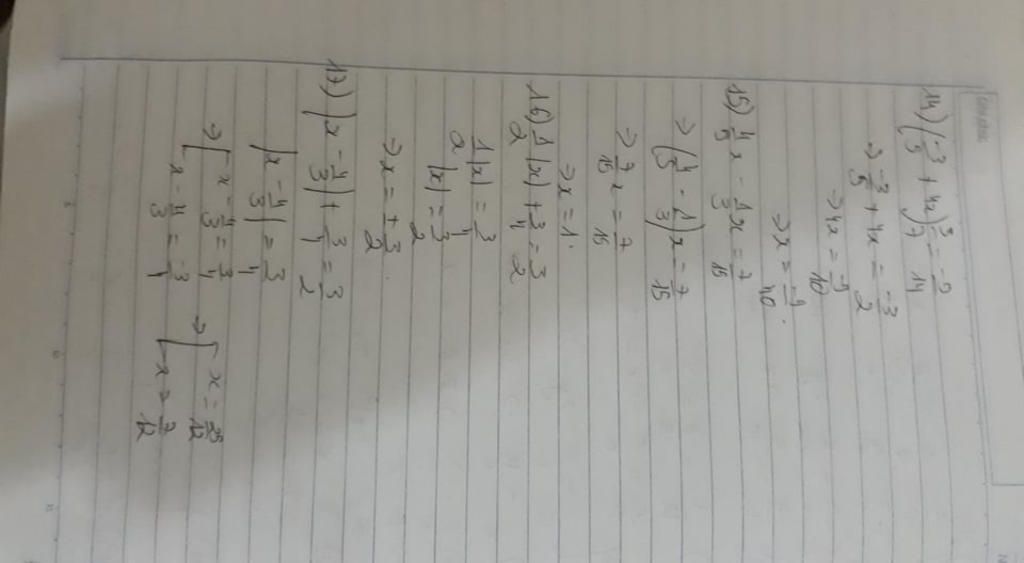 14) (-3/5 + 4x) 3/7 = -9/14
=> -3/5 + 4x = -3/2
=> 4x = -9/10
=> x = -9/40.
15) 4/5 x - 1/3 x = 7/15
=> (4/5 - 1/3) x = 7/15
=> 7/15 x = 7/15
=> x = 1.
16) 1/2 |x| + 3/4 = 3/2
1/2 |x| = 3/4
|x| = 3/2
=> x = ± 3/2.
17) |x - 4/3| + 3/4 = 3/2
|x - 4/3| = 3/4
=> [ x - 4/3 = 3/4 => [ x = 25/12
x - 4/3 = -3/4 x = 7/12